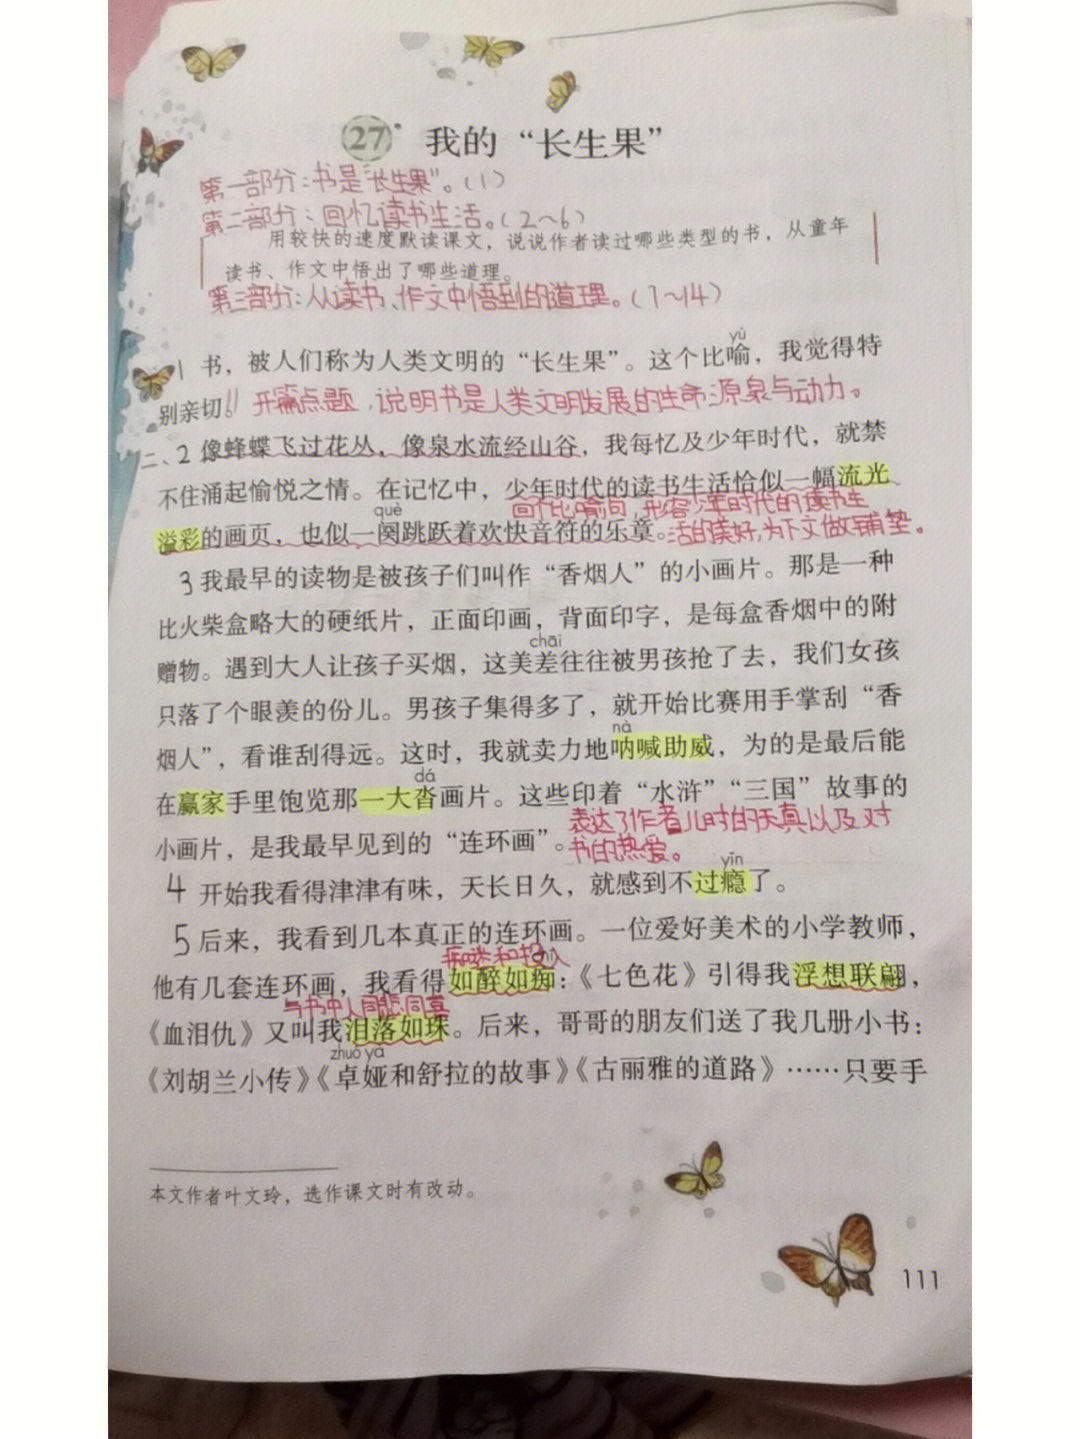 27* 我的“长生果”
第一部分：书是“长生果”。(1)
第二部分：回忆读书生活。(2~6)
用较快的速度默读课文，说说作者读过哪些类型的书，从童年
读书、作文中悟出了哪些道理。
第三部分：从读书、作文中悟到的道理。(7~14)
yù
1 书，被人们称为人类文明的“长生果”。这个比喻，我觉得特
别亲切。开篇点题，说明书是人类文明发展的生命源泉与动力。
二、2 像蜂蝶飞过花丛，像泉水流经山谷，我每忆及少年时代，就禁
不住涌起愉悦之情。在记忆中，少年时代的读书生活恰似一幅流光
què
比喻句，形容少年时代的读书生
溢彩的画页，也似一阕跳跃着欢快音符的乐章。活的美好，为下文做铺垫。
3 我最早的读物是被孩子们叫作“香烟人”的小画片。那是一种
比火柴盒略大的硬纸片，正面印画，背面印字，是每盒香烟中的附
chāi
赠物。遇到大人让孩子买烟，这美差往往被男孩抢了去，我们女孩
只落了个眼羡的份儿。男孩子集得多了，就开始比赛用手掌刮“香
nà
烟人”，看谁刮得远。这时，我就卖力地呐喊助威，为的是最后能
dá
在赢家手里饱览那一大沓画片。这些印着“水浒”“三国”故事的
表达了作者儿时的天真以及对
小画片，是我最早见到的“连环画”。书的热爱。
yǐn
4 开始我看得津津有味，天长日久，就感到不过瘾了。
5 后来，我看到几本真正的连环画。一位爱好美术的小学教师，
痴迷和投入
他有几套连环画，我看得如醉如痴：《七色花》引得我浮想联翩，
与书中人同悲同喜
《血泪仇》又叫我泪落如珠。后来，哥哥的朋友们送了我几册小书：
zhuó yà
《刘胡兰小传》《卓娅和舒拉的故事》《古丽雅的道路》……只要手
本文作者叶文玲，选作课文时有改动。
111